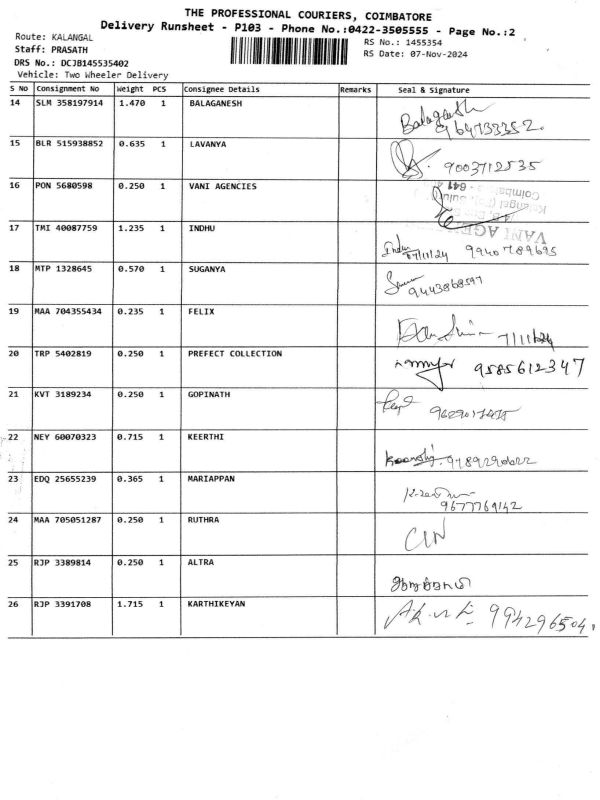 THE PROFESSIONAL COURIERS, COIMBATORE
Delivery Runsheet - P103 - Phone No.:0422-3505555 - Page No.:2
Route: KALANGAL
RS No.: 1455354
Staff: PRASATH
RS Date: 07-Nov-2024
DRS No.: DCJB145535402
Vehicle: Two Wheeler Delivery
S No Consignment No Weight PCS Consignee Details Remarks Seal & Signature
14 SLM 358197914 1.470 1 BALAGANESH Balaganesh
9164733352.
15 BLR 515938852 0.635 1 LAVANYA 9003712535
16 PON 5680598 0.250 1 VANI AGENCIES
VANI AGEN
17 TMI 40087759 1.235 1 INDHU Indhu 07/11/24 9940789695
18 MTP 1328645 0.570 1 SUGANYA 9443868597
19 MAA 704355434 0.235 1 FELIX 7/11/24
20 TRP 5402819 0.250 1 PREFECT COLLECTION 9585612347
21 KVT 3189234 0.250 1 GOPINATH
22 NEY 60070323 0.715 1 KEERTHI 9789290622
23 EDQ 25655239 0.365 1 MARIAPPAN
9677769142
24 MAA 705051287 0.250 1 RUTHRA
25 RJP 3389814 0.250 1 ALTRA
26 RJP 3391708 1.715 1 KARTHIKEYAN 994296504.